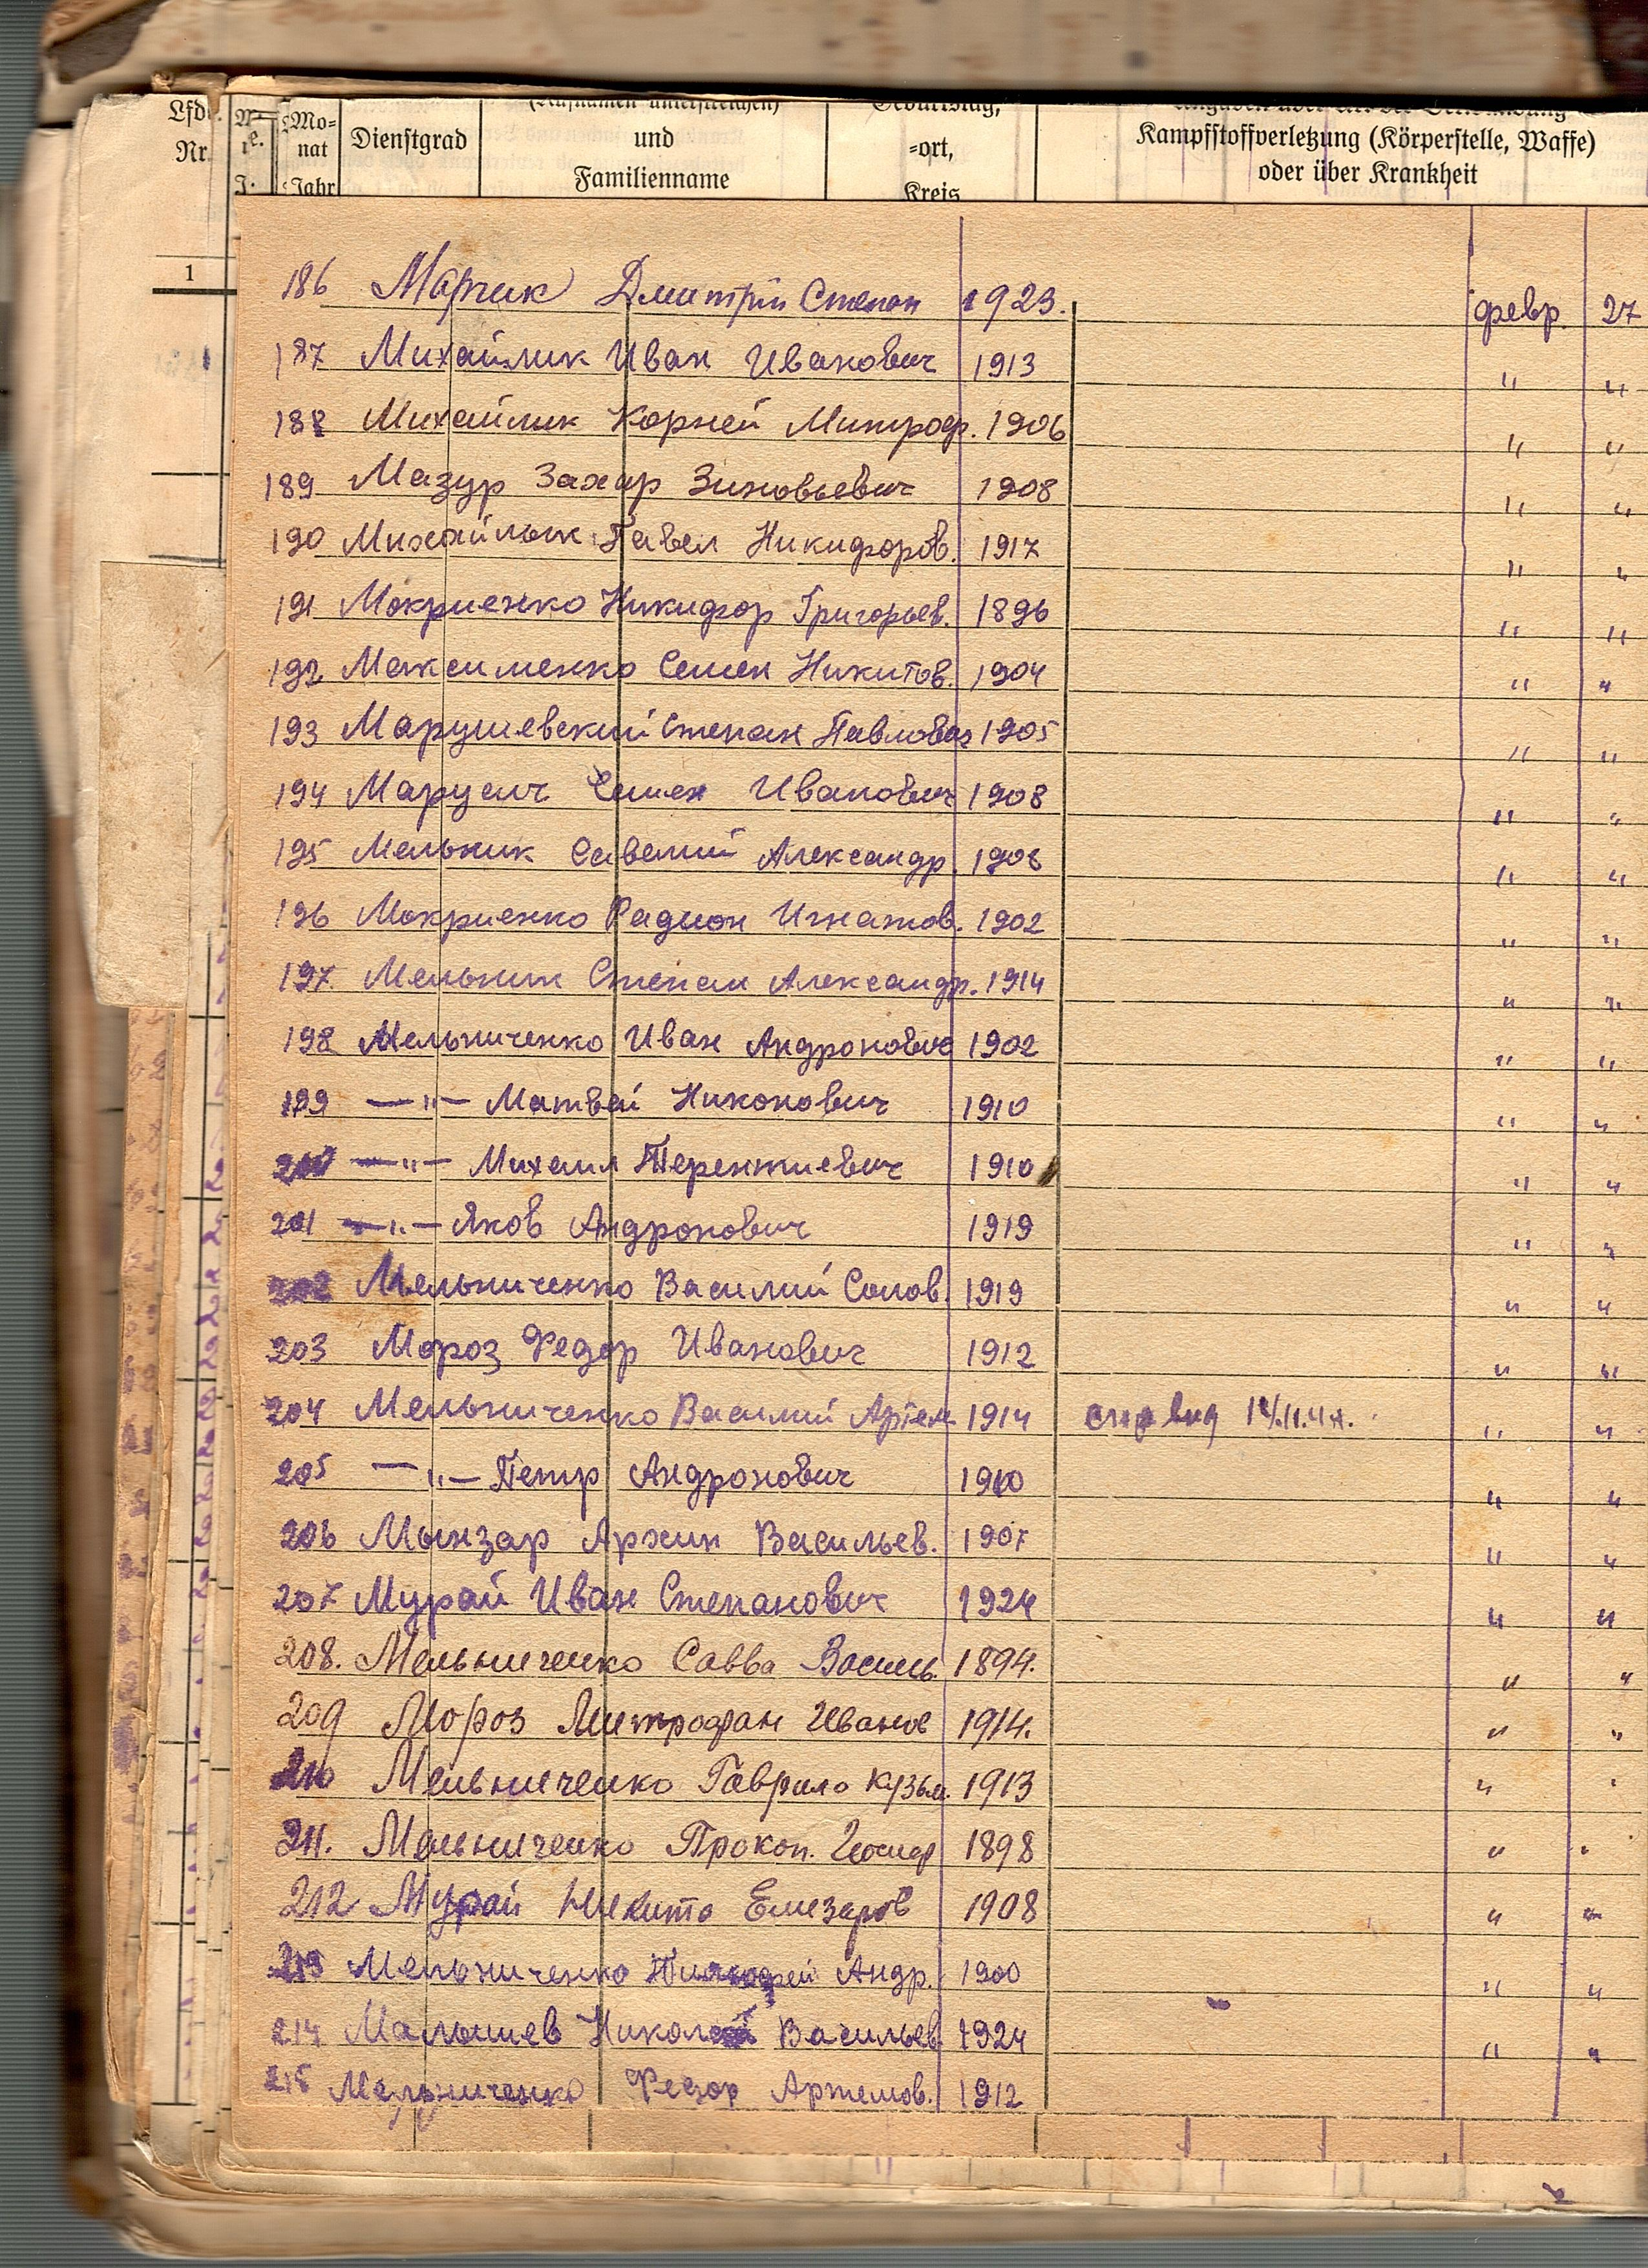 Lfd.
Nr.
Mo-
nat
Jahr
Dienstgrad
(Rufnamen unterstreichen)
und
Familienname
Geburtstag,
-ort,
Kreis
Kampfstoffverletzung (Körperstelle, Waffe)
oder über Krankheit
1
186 Марчик Дмитрий Степан 1923. февр. 27
187 Михайлик Иван Иванович 1913 " "
188 Михайлик Корней Митроф. 1906 " "
189 Мазур Захар Зиновьевич 1908 " "
190 Михайлык Павел Никифоров. 1917 " "
191 Мокриенко Никифор Григорьев. 1896 " "
192 Максименко Семен Никитов. 1904 " "
193 Марушевский Степан Павлович 1905 " "
194 Марусич Семен Иванович 1908 " "
195 Мельник Савелий Александр. 1908 " "
196 Мокриенко Радион Игнатов. 1902 " "
197. Мельник Степан Александр. 1914 " "
198 Мельниченко Иван Андронович 1902 " "
199 — " — Матвей Никонович 1910 " "
200 — " — Михаил Терентиевич 1910 " "
201 — " — Яков Андронович 1919 " "
202 Мельниченко Василий Солов. 1919 " "
203 Мороз Федор Иванович 1912 " "
204 Мельниченко Василий Артем 1914 " "
205 — " — Петр Андронович 1910 " "
206 Мынзар Архип Васильев. 1907 " "
207 Мурай Иван Степанович 1924 " "
208. Мельниченко Савва Василь. 1894. " "
209 Мороз Митрофан Иванов 1914. " "
210 Мельниченко Гаврило Кузьм. 1913 " "
211. Мельниченко Прокоп. 1898 " "
212 Мурай Никита Елизаров 1908 " "
213 Мельниченко Андр. 1900 " "
214 Малышев Николай Васильев. 1924 " "
215 Мельниченко Федор Артемов. 1912